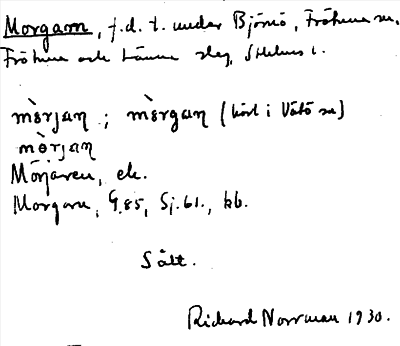 Morgarn, f.d. t. under Björnö, Frötuna sn,
Frötuna och Länna slg, Sthlms l.
mèrjaɳ ; mèrgaɳ (hört i Vätö sn)
mèrjaɳ
Mörjaren, ek.
Morgarn, G.85, Sj.61., kb.
Sått.
Richard Norrman 1930.